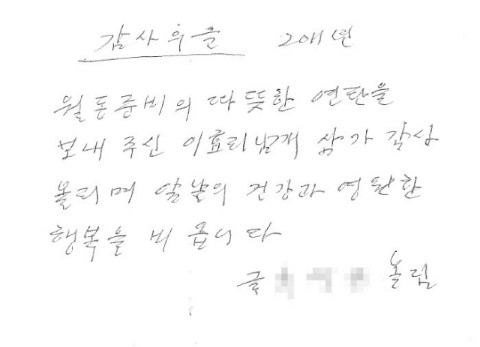 감사의글 2011년
월동준비의 따뜻한 연탄을
보내 주신 이효리님게 삼가 감사
올리며 앞날의 건강과 영원한
행복을 비 옵니다
글 올림